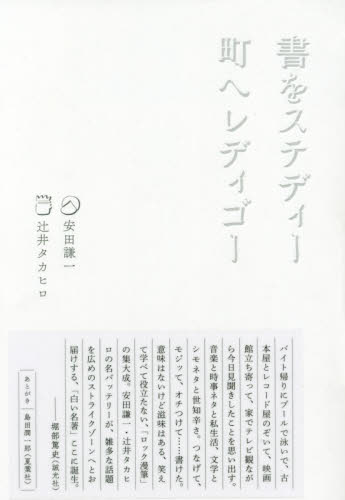 書をステディー
町へレディゴー
安田謙一
辻井タカヒロ
バイト帰りにプールで泳いで、古
本屋とレコード屋のぞいて、映画
館立ち寄って、家でテレビ観なが
ら今日見聞きしたことを思い出す。
音楽と時事ネタと私生活、文学と
シモネタと世知辛さ。つなげて、
モジッて、オチつけて……書けた。
意味はないけど滋味はある、笑え
て学べて役立たない、「ロック漫筆」
の集大成。安田謙一・辻井タカヒ
ロの名バッテリーが、雑多な話題
を広めのストライクゾーンへとお
届けする、「白い名著」ここに誕生。
――堀部篤史(誠光社)
あとがき　島田潤一郎(夏葉社)